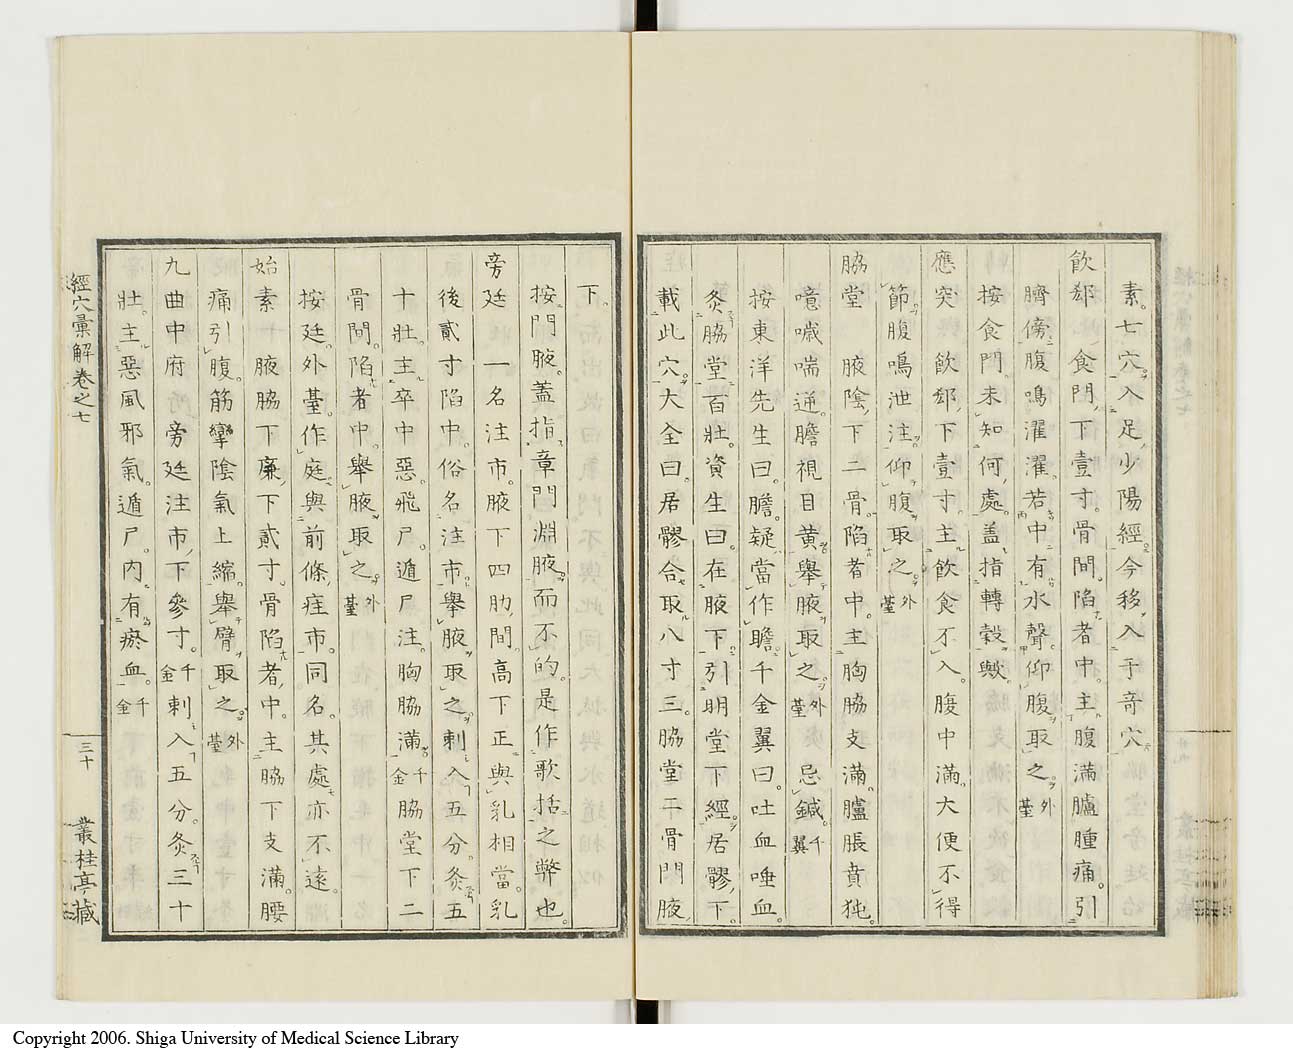 素。七穴。入足少陽經今移入于奇穴
飮郄 食門 下壹寸。骨間。陷者中。主腹滿臚腫痛。引
臍傍。腹鳴濯濯。若中有水聲。仰腹取之。外臺
按食門。未知何處。蓋指轉穀歟。
應突 飮郄 下壹寸。主飮食不入。腹中滿。大便不得
節。腹鳴泄注。仰腹取之。外臺
脇堂 腋陰 下二骨。陷者中。主胸脇支滿。臚脹賁㹠。
噫噦喘逆。膽視目黄。舉腋取之。外臺 忌鍼。千翼
按東洋先生曰。膽。疑當作瞻。千金翼曰。吐血唾血。
灸脇堂百壯。資生曰。在腋下。引明堂下經。居髎下。
載此穴。大全曰。居髎合取八寸三。脇堂二骨門腋
下。
按門腋。蓋指章門淵腋。而不的。是作歌括之弊也。
旁廷 一名注市。腋下四肋間。高下正與乳相當。乳
後貳寸陷中。俗名注市。舉腋取之。刺入五分。灸五
十壯。主卒中惡。飛尸。遁尸注。胸脇滿。千金 脇堂下二
骨間。陷者中。舉腋取之。外臺
按廷。外臺。作庭。與前條。疰市。同名。其處亦不遠。
始素 腋脇下廉。下貳寸。骨陷者中。主脇下支滿。腰
痛引腹。筋攣陰氣上縮。舉臂取之。外臺
九曲中府 旁廷注市。下參寸。千金 刺入五分。灸三十
壯。主惡風邪氣。遁尸。内有瘀血。千金
經穴彙解卷之七
三十
叢桂亭藏
Copyright 2006. Shiga University of Medical Science Library